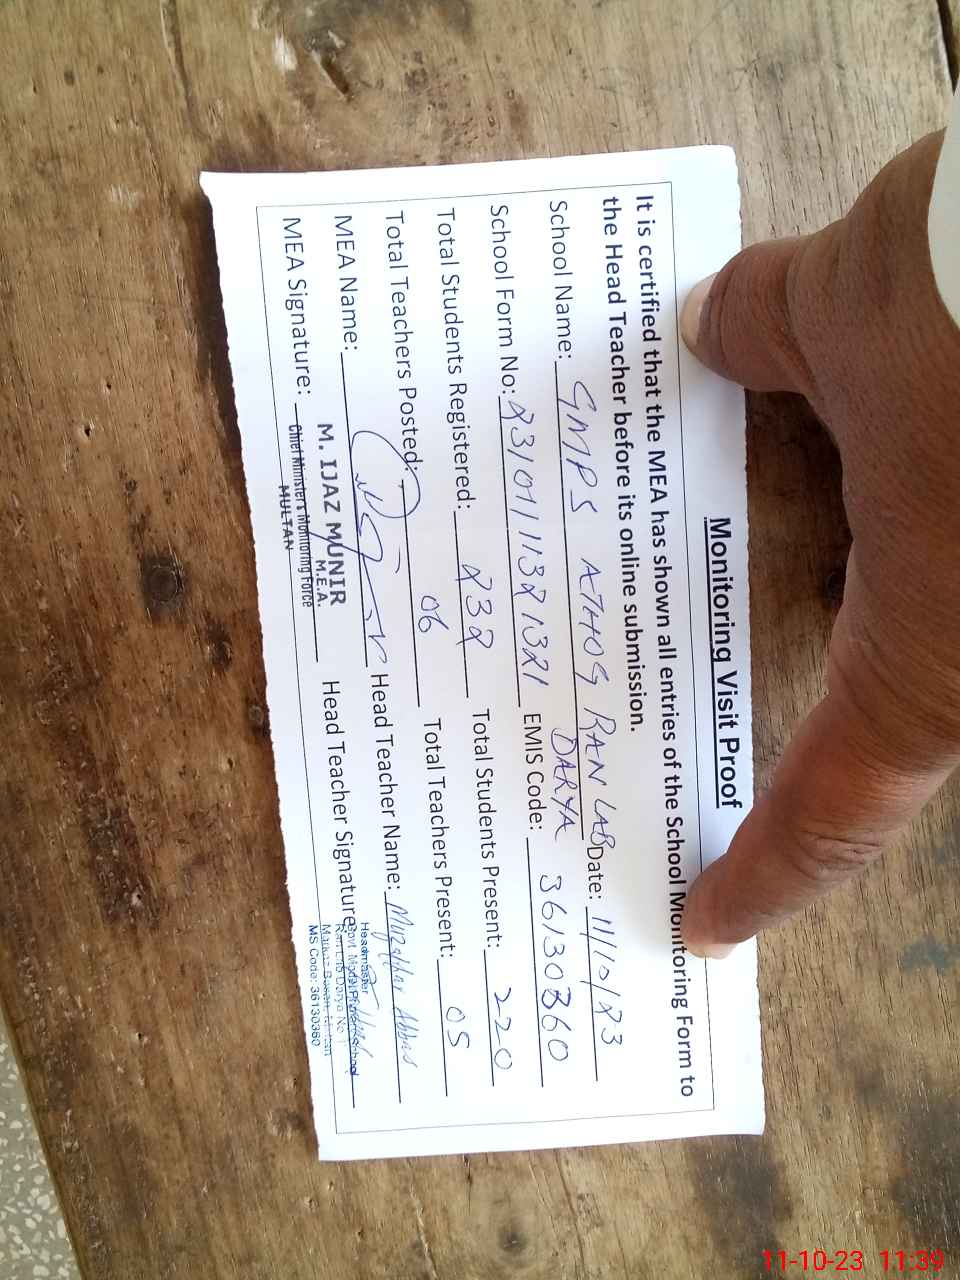 Monitoring Visit Proof
It is certified that the MEA has shown all entries of the School Monitoring Form to
the Head Teacher before its online submission.
School Name: GMPS RAN LAB Date: 11/10/23
DARYA
School Form No: EMIS Code: 36130360
Total Students Registered: 232 Total Students Present: 220
Total Teachers Posted: 06 Total Teachers Present: 05
MEA Name: Head Teacher Name: Muzaffar Abbas
MEA Signature: Head Teacher Signature:
M. IJAZ MUNIR
M.E.A.
Chief Minister's Monitoring Force
MULTAN
Headmaster
Govt. Model Primary School
Ran Lab Darya No 1
Markaz Multan
MS Code: 36130360
11-10-23 11:39